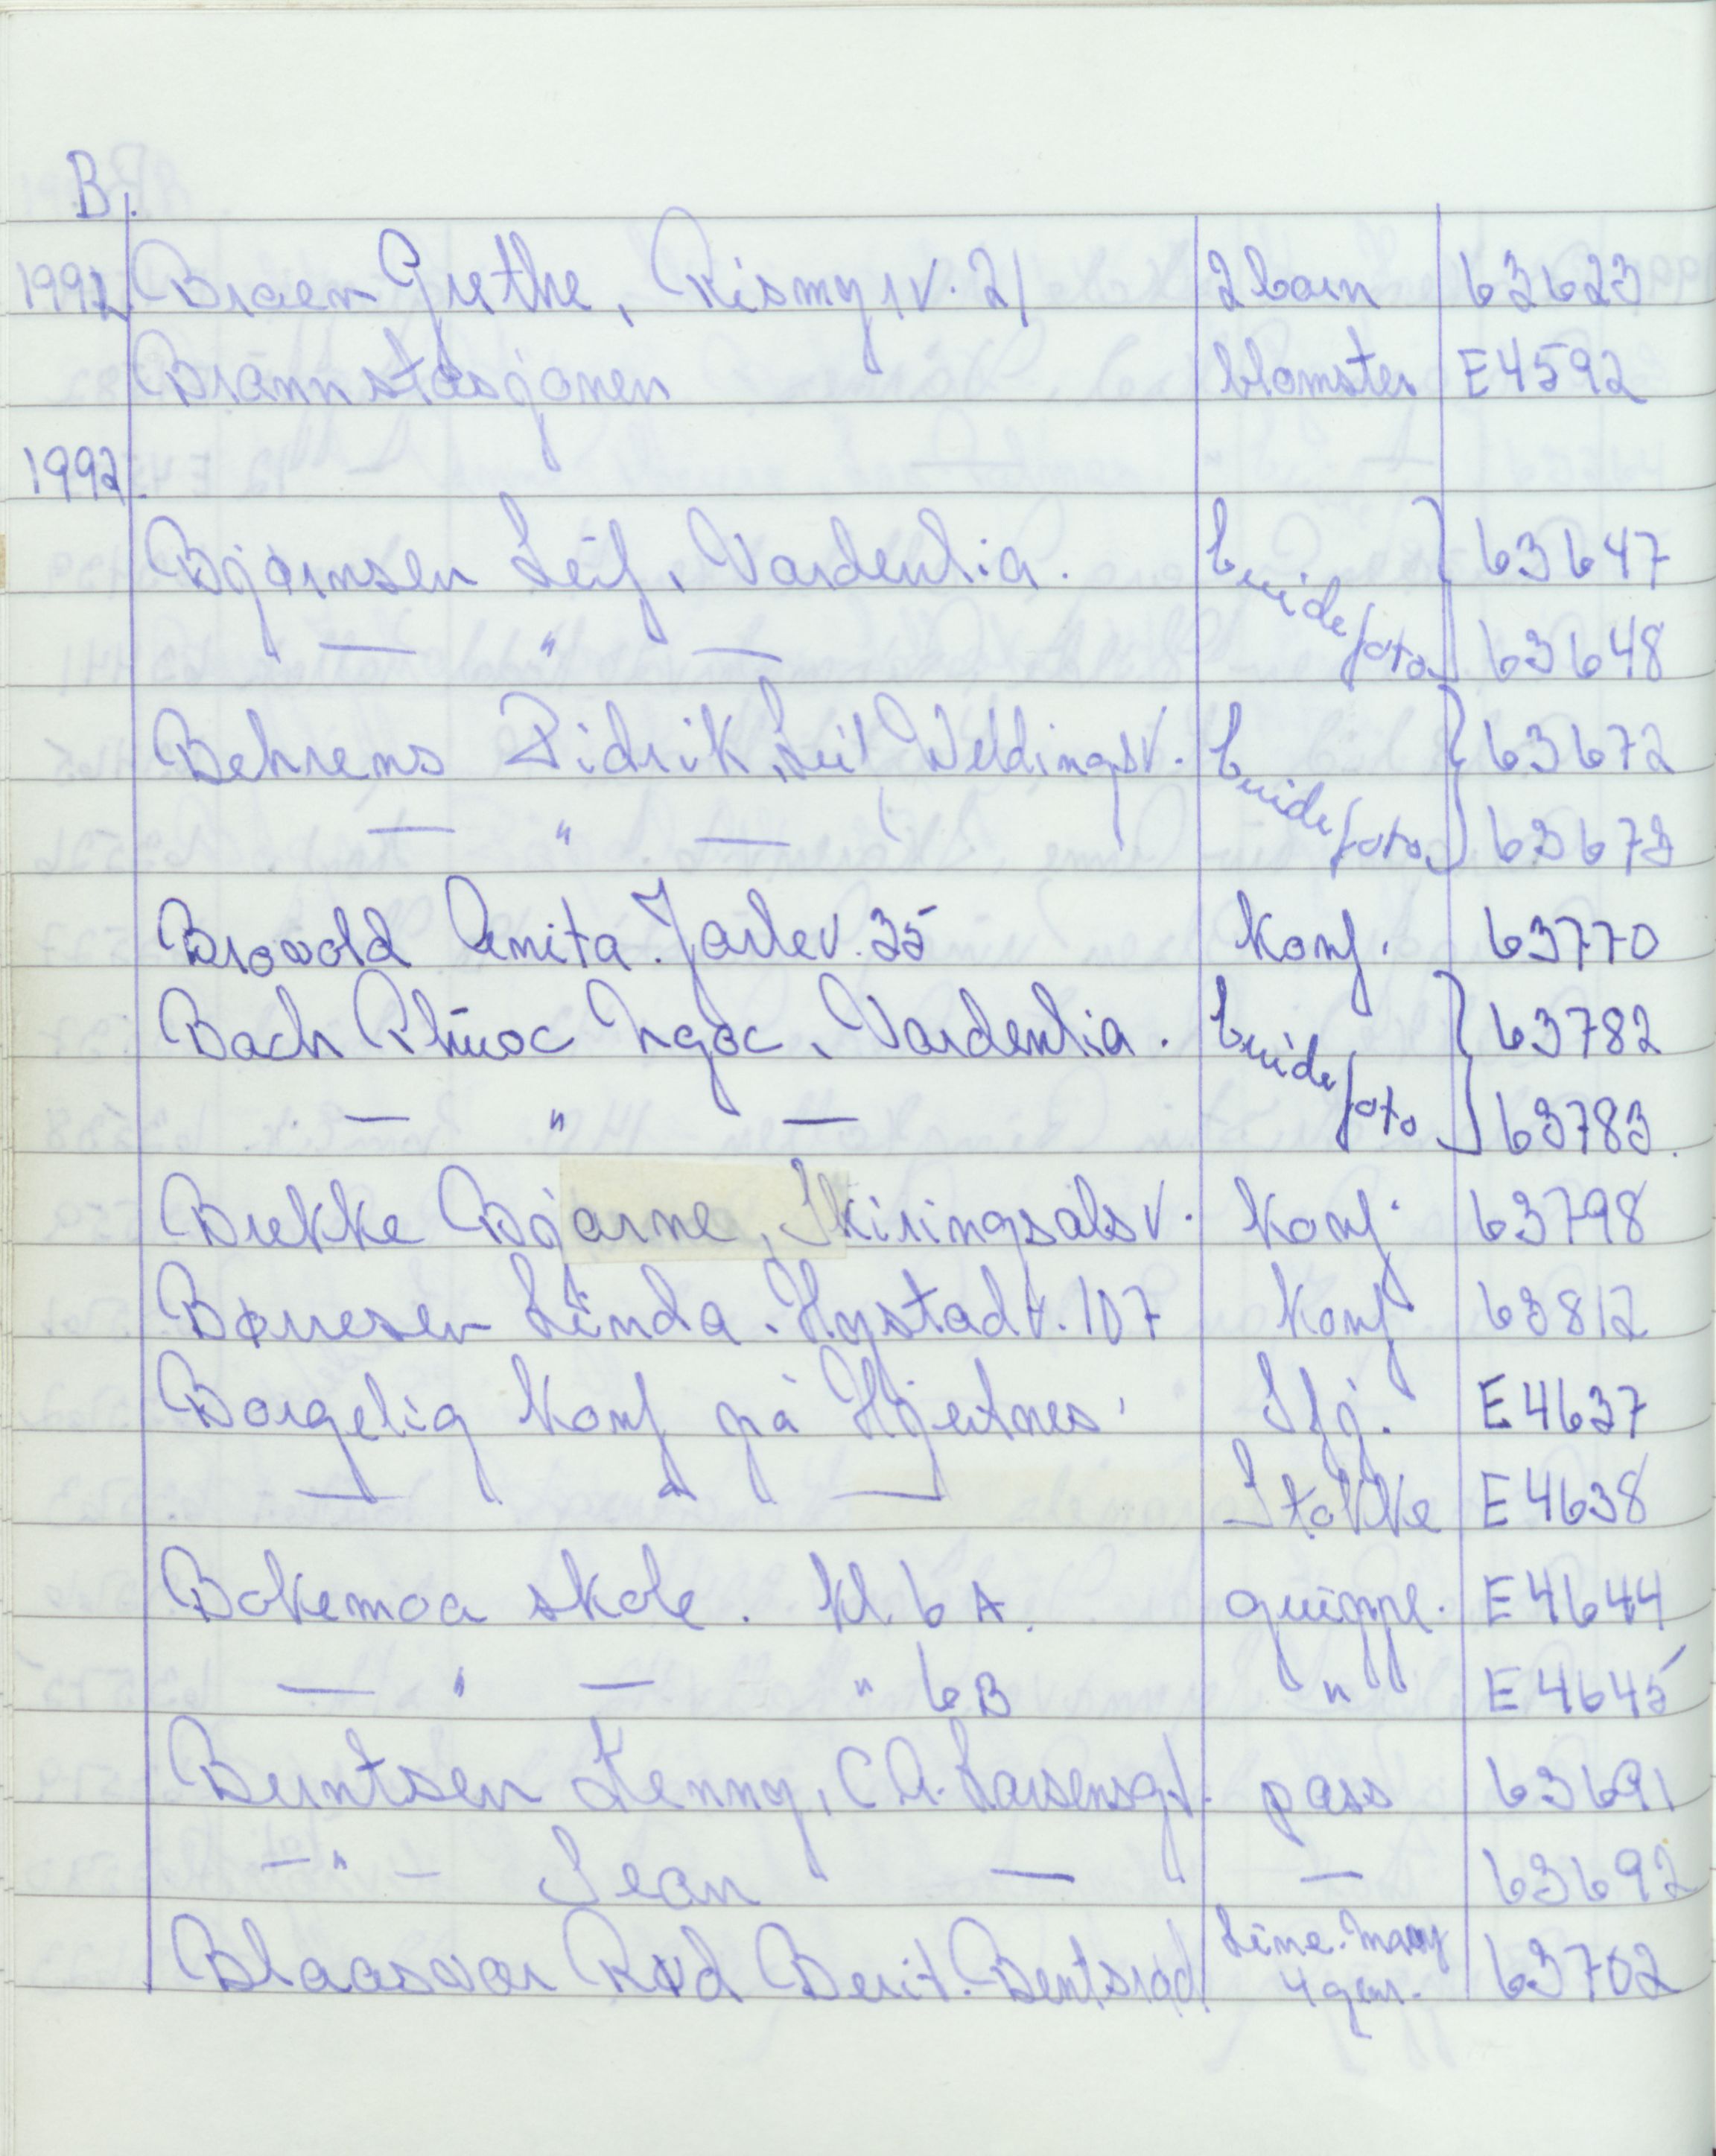 B.
1992 Braen Grethe, Rismyrv. 21 2 barn 63623
Brannstasjonen blomster E4592
1992.
Bjørnsen Leif, Vardenlia. brudefoto 63647
— " — 63648
Behrens Didrik, Leif Weldingsv. brudefoto 63672
— " — 63673
Brovold Anita. Jarlev. 35 Konf. 63770
Bach Phuoc Ngoc, Vardenlia. brudefoto 63782
— " — 63783.
Brekke Bjarne, Skiringsalsv. Konf. 63798
Børresen Linda. Hystadv. 107 Konf 63812
Borgelig Konf på Hjertnes. Sfj. E4637
— " — Stokke E4638
Bokemoa skole. Kl. 6 A. gruppe. E4644
— " — " 6B " E4645
Berntsen Kenny, C A. Larsensgt. pass 63691
— " — Sean — — 63692
Blaasvær Rød Berit. Bentsrød Line-Mary 4 gen. 63702